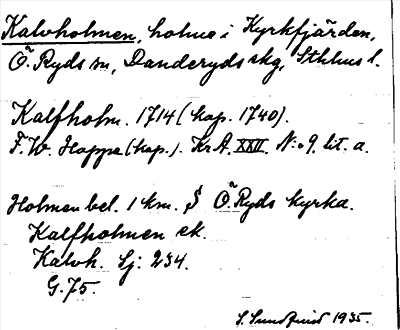 Kalvholmen, holme i Kyrkfjärden,
Ö. Ryds sn, Danderyds skg, Sthlms l.
Kalfholm. 1714 (kop. 1740).
F. W. Hoppe (kop.). KrA. XXII. N:o 9. lit. a.
Holmen bel. 1 km. S Ö. Ryds kyrka.
Kalfholmen ek.
Kalvh. Sj: 234.
G. 75.
S. Sundqvist 1935.